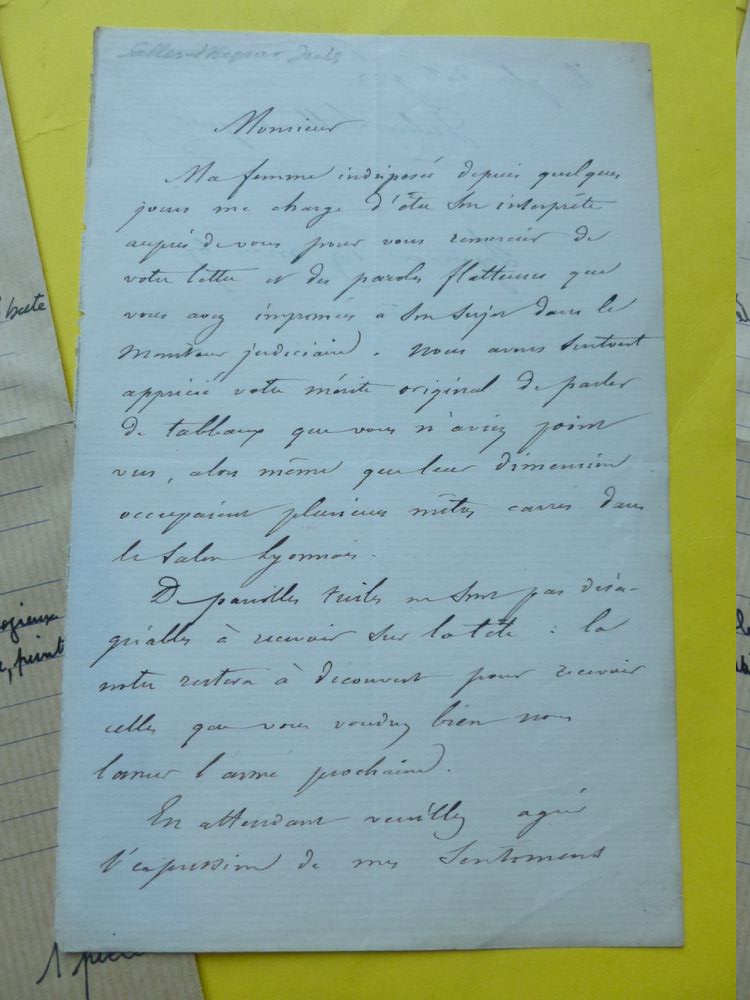 Salles-Wagner Jules
Monsieur
Ma femme indisposée depuis quelques
jours me charge d'être son interprète
auprès de vous pour vous remercier de
votre lettre et des paroles flatteuses que
vous avez imprimées à son sujet dans le
moniteur judiciaire. Nous avons surtout
apprécié votre mérite original de parler
de tableaux que vous n'aviez point
vus, alors même que leur dimension
occupaient plusieurs mètres carrés dans
le Salon Lyonnais.
De pareilles tuiles ne sont pas désa-
gréables à recevoir sur la tête : la
notre restera à découvert pour recevoir
celles que vous voudrez bien nous
lancer l'année prochaine.
En attendant veuillez agréer
l'expression de mes sentiments